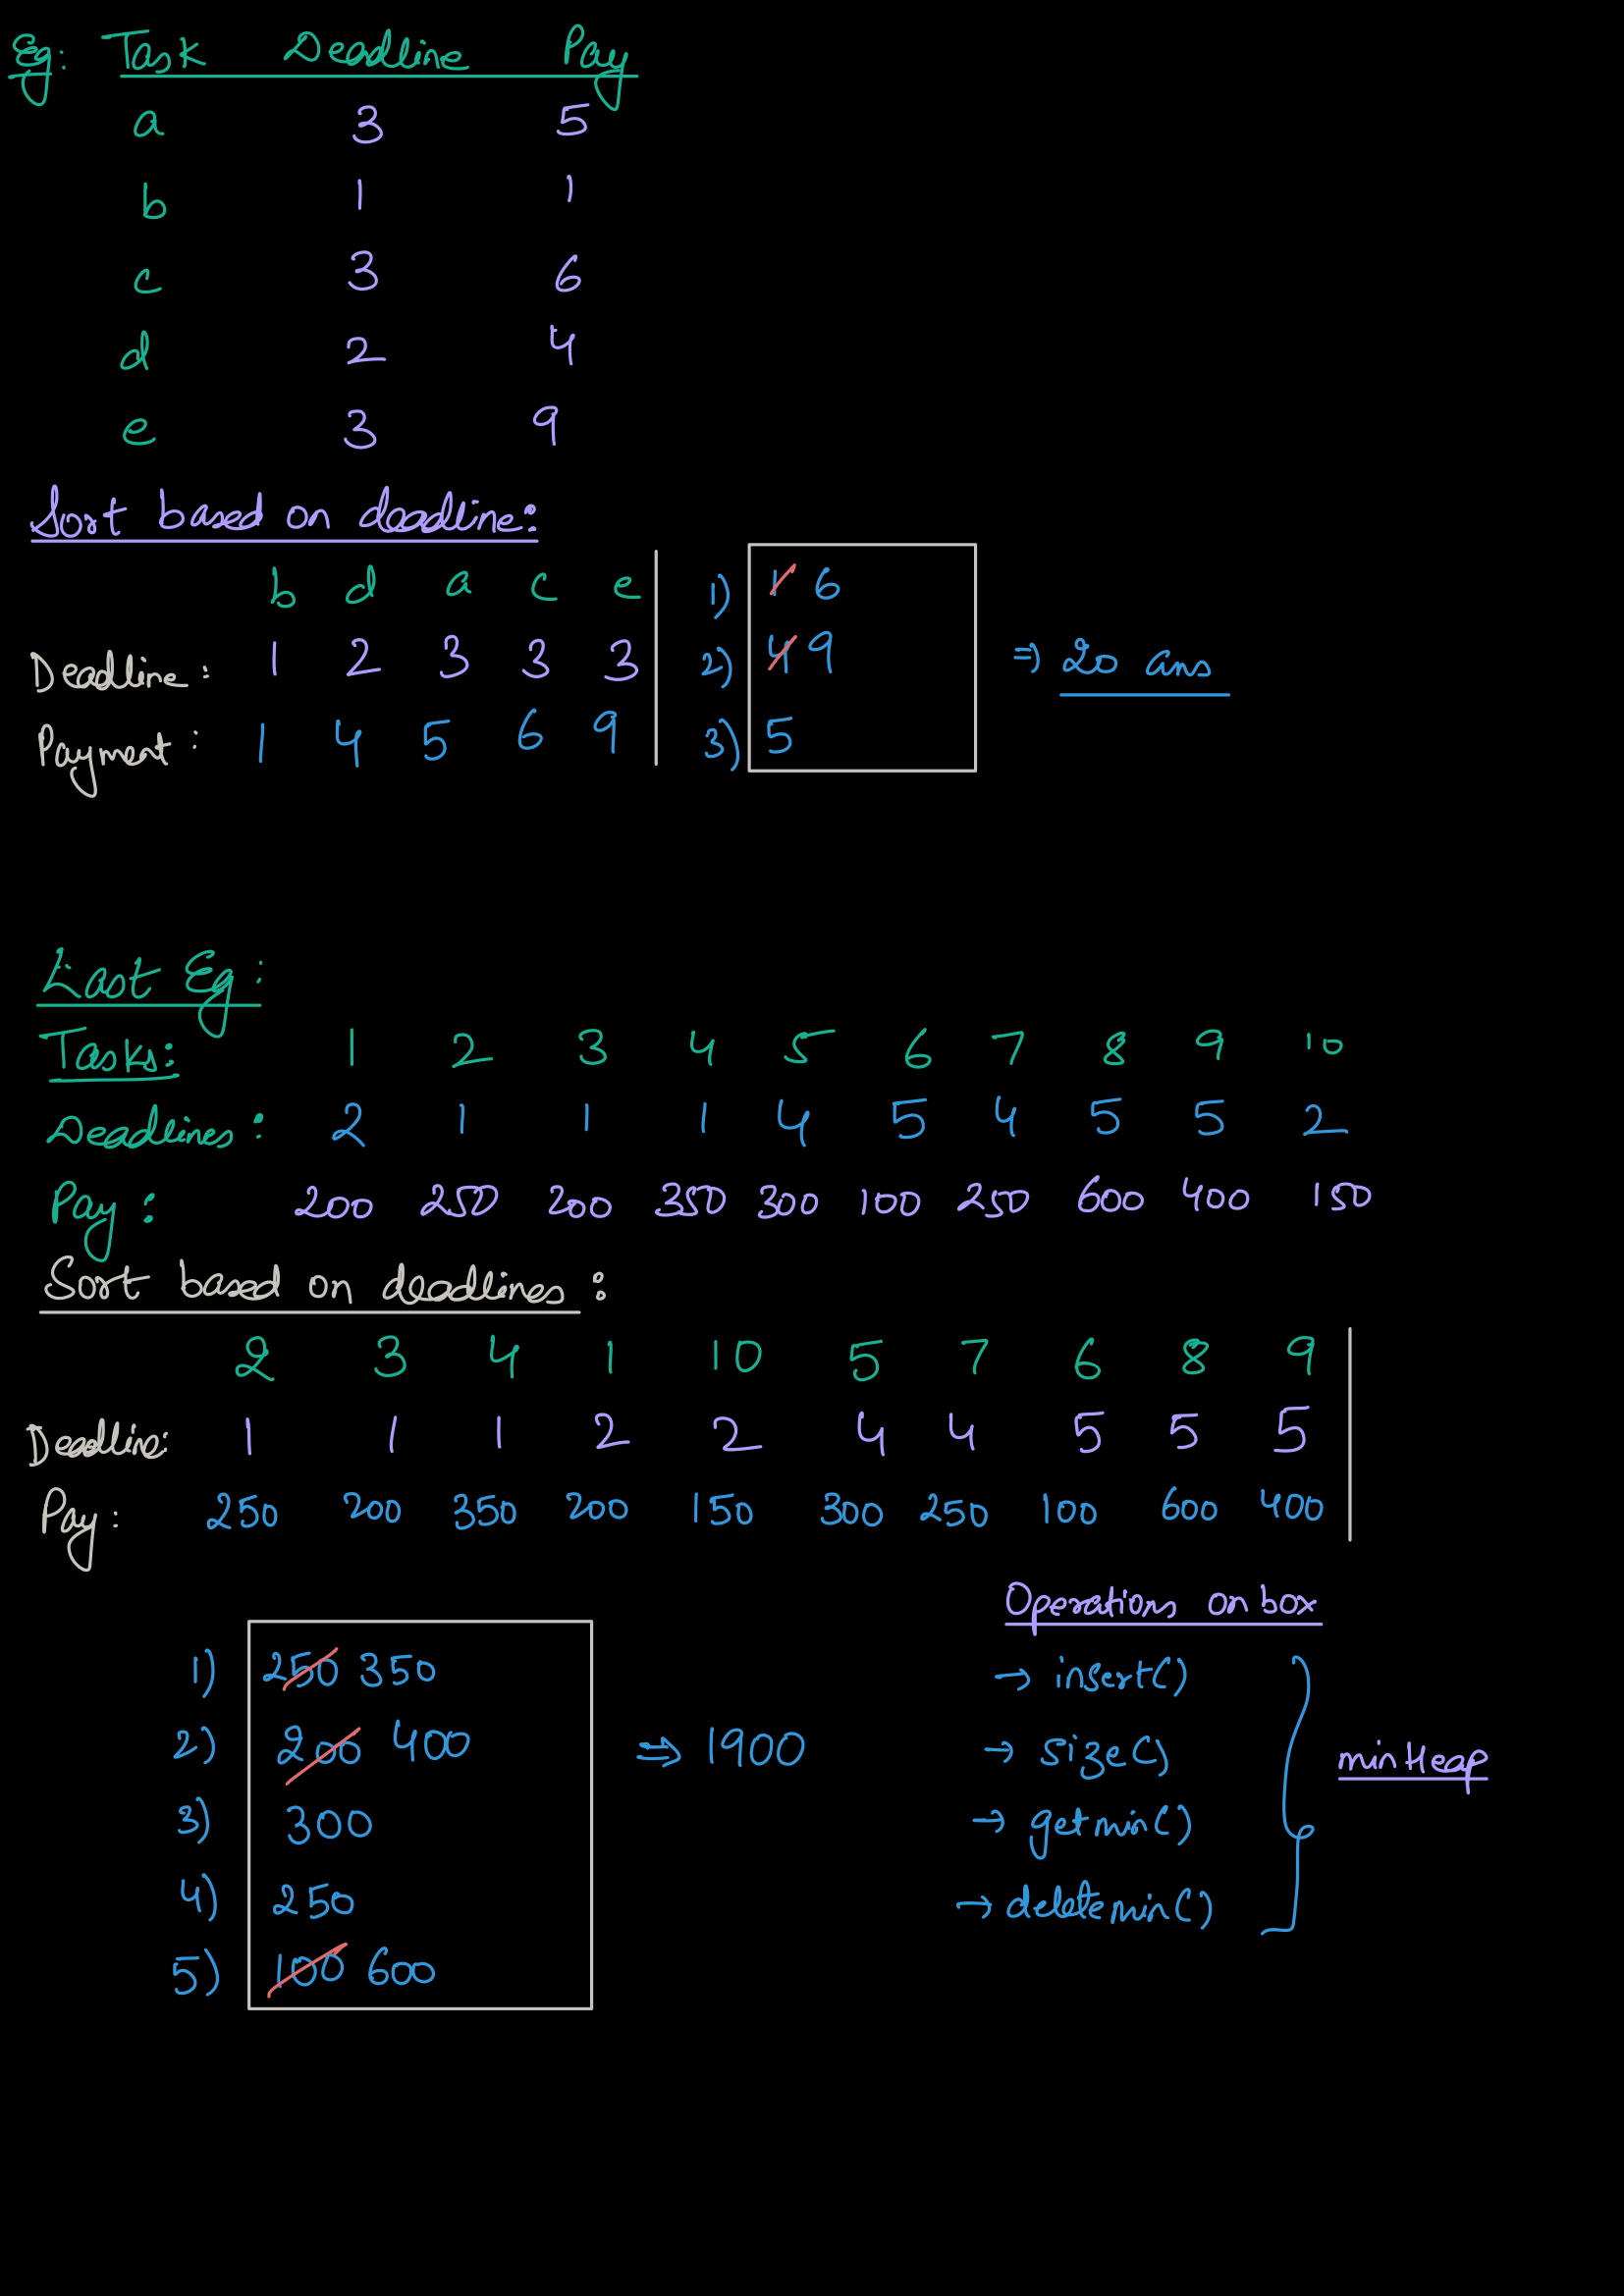 Eg: Task Deadline Pay
a 3 5
b 1 1
c 3 6
d 2 4
e 3 9
Sort based on deadline:
b d a c e
Deadline: 1 2 3 3 3
Payment: 1 4 5 6 9
1) 1 6
2) 4 9 => 20 ans
3) 5
Last Eg:
Tasks: 1 2 3 4 5 6 7 8 9 10
Deadlines: 2 1 1 1 4 5 4 5 5 2
Pay: 200 250 200 350 300 100 250 600 400 150
Sort based on deadlines:
2 3 4 1 10 5 7 6 8 9
Deadline: 1 1 1 2 2 4 4 5 5 5
Pay: 250 200 350 200 150 300 250 100 600 400
1) 250 350
2) 200 400 => 1900
3) 300
4) 250
5) 100 600
Operations on box
→ insert()
→ size()
→ getmin()
→ deletemin()
minHeap